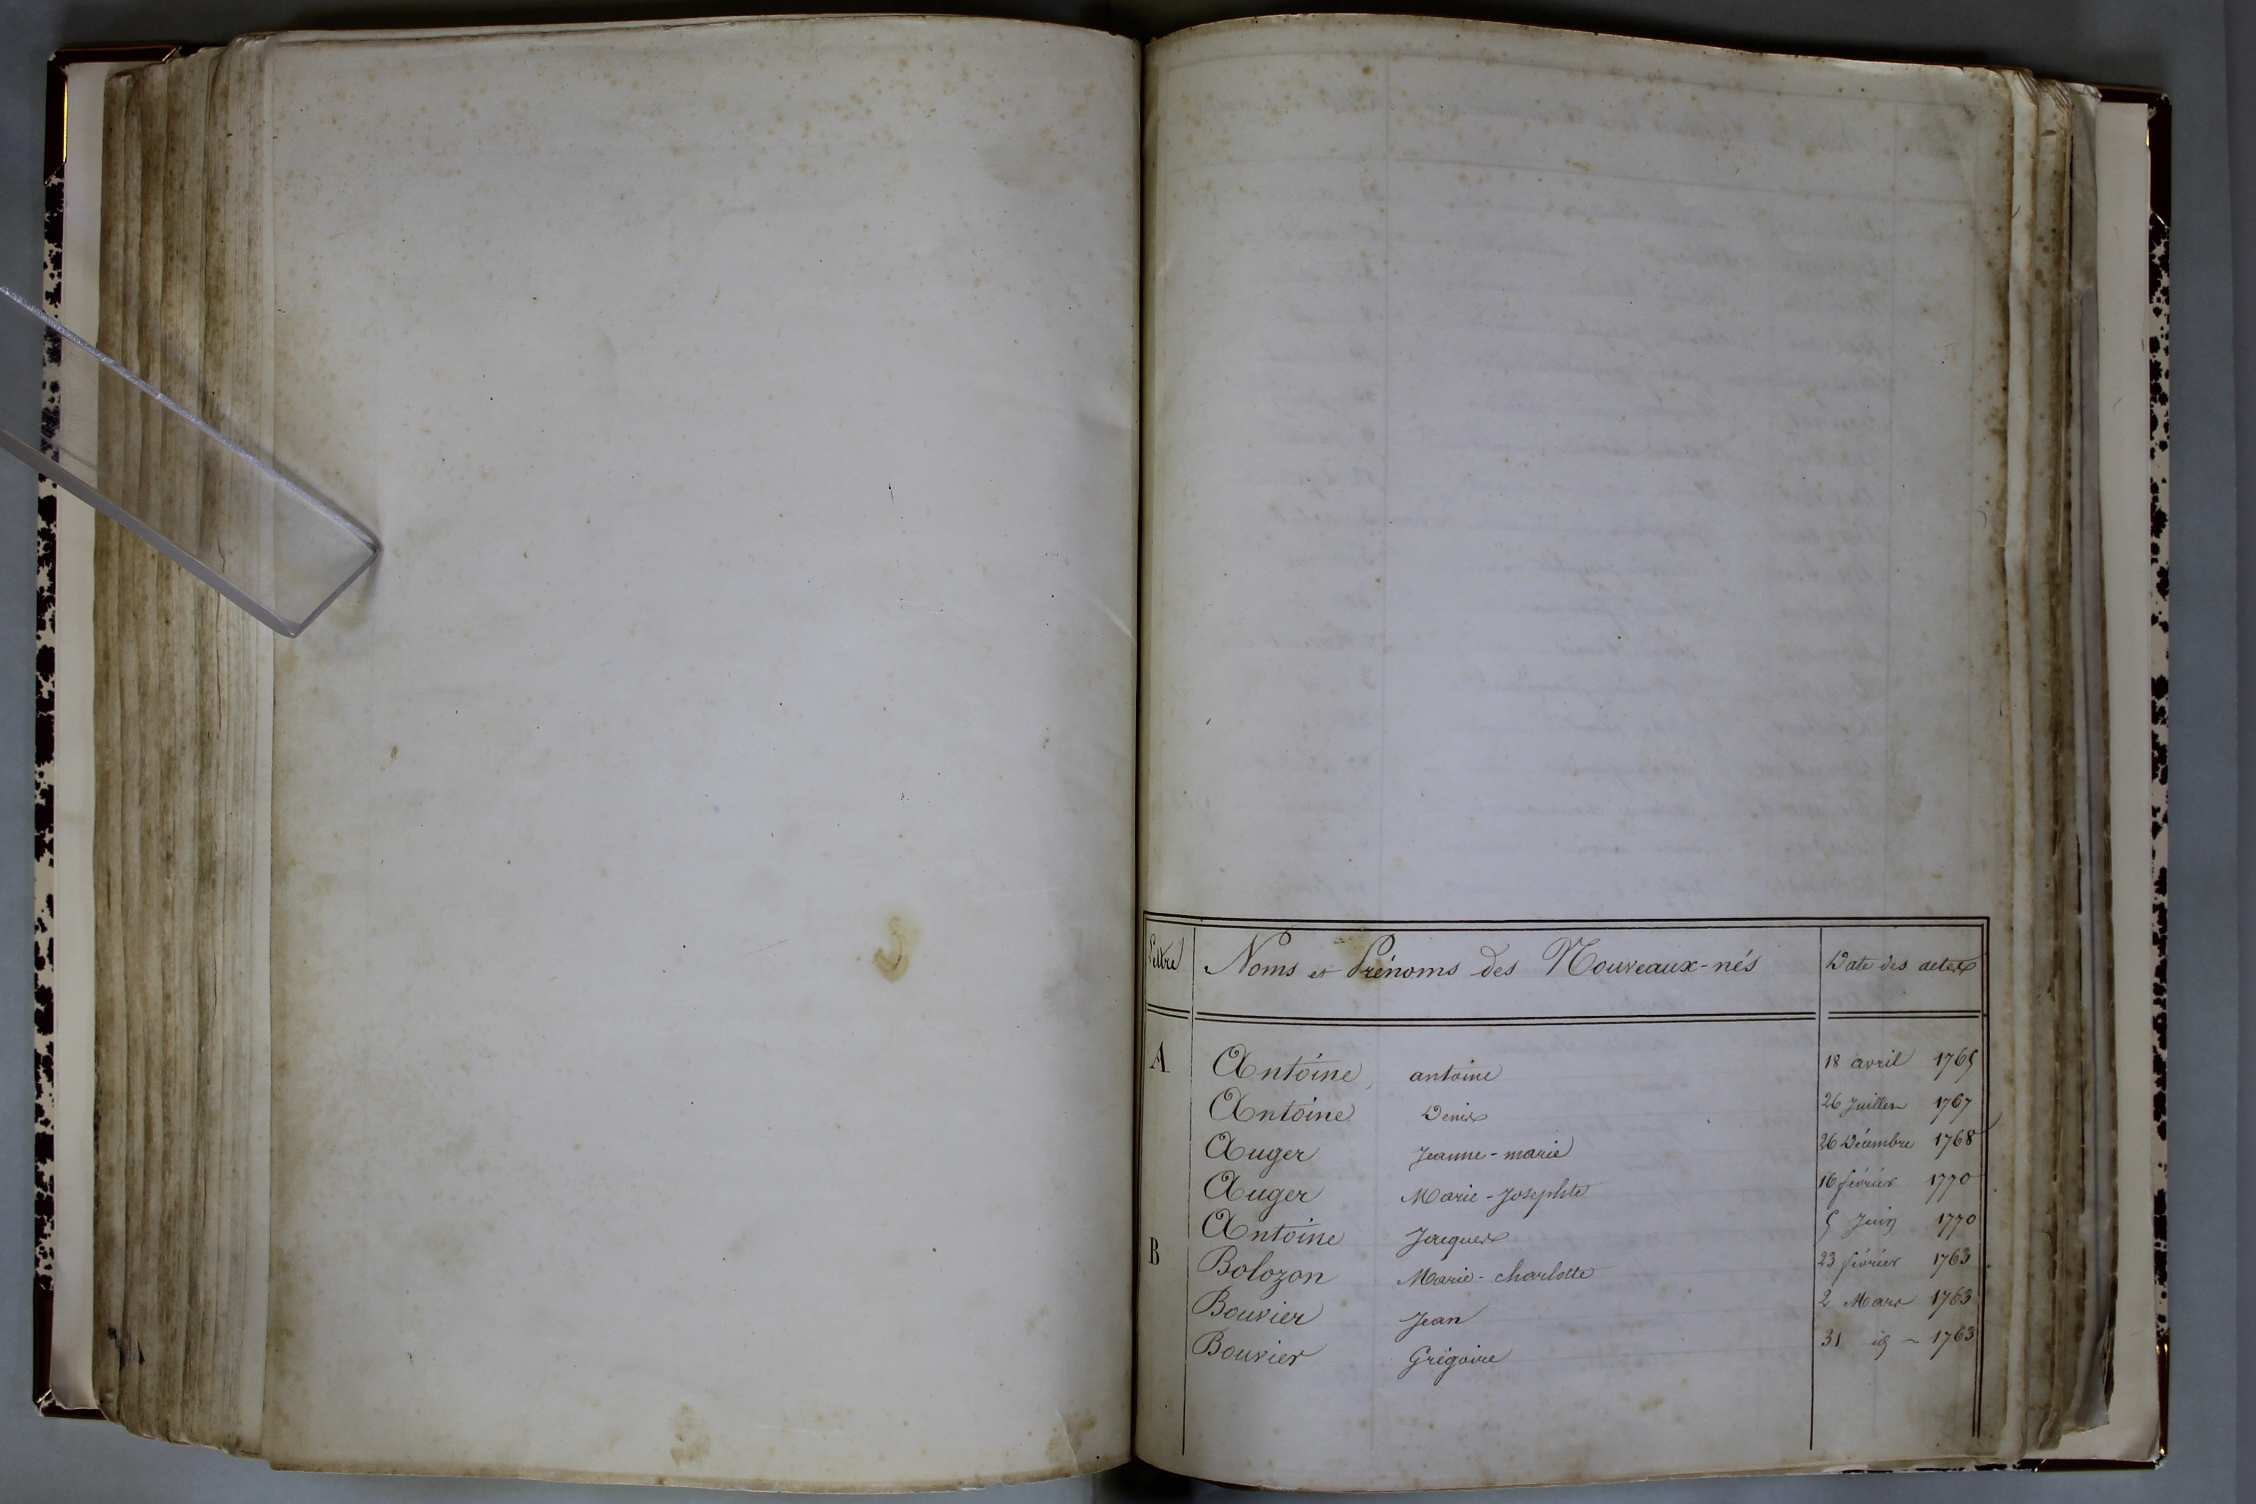 Lettre Noms et Prénoms des Nouveaux-nés Date des actes
A Antoine, antoine 18 avril 1765
Antoine Denis 26 Juillet 1767
Auger Jeanne-marie 26 Décembre 1768
Auger Marie-Josephte 16 février 1770
Antoine Jacques 5 Juin 1770
B Bolozon Marie-charlotte 23 février 1763
Bouvier Jean 2 Mars 1763
Bouvier Grégoire 31 id - 1763